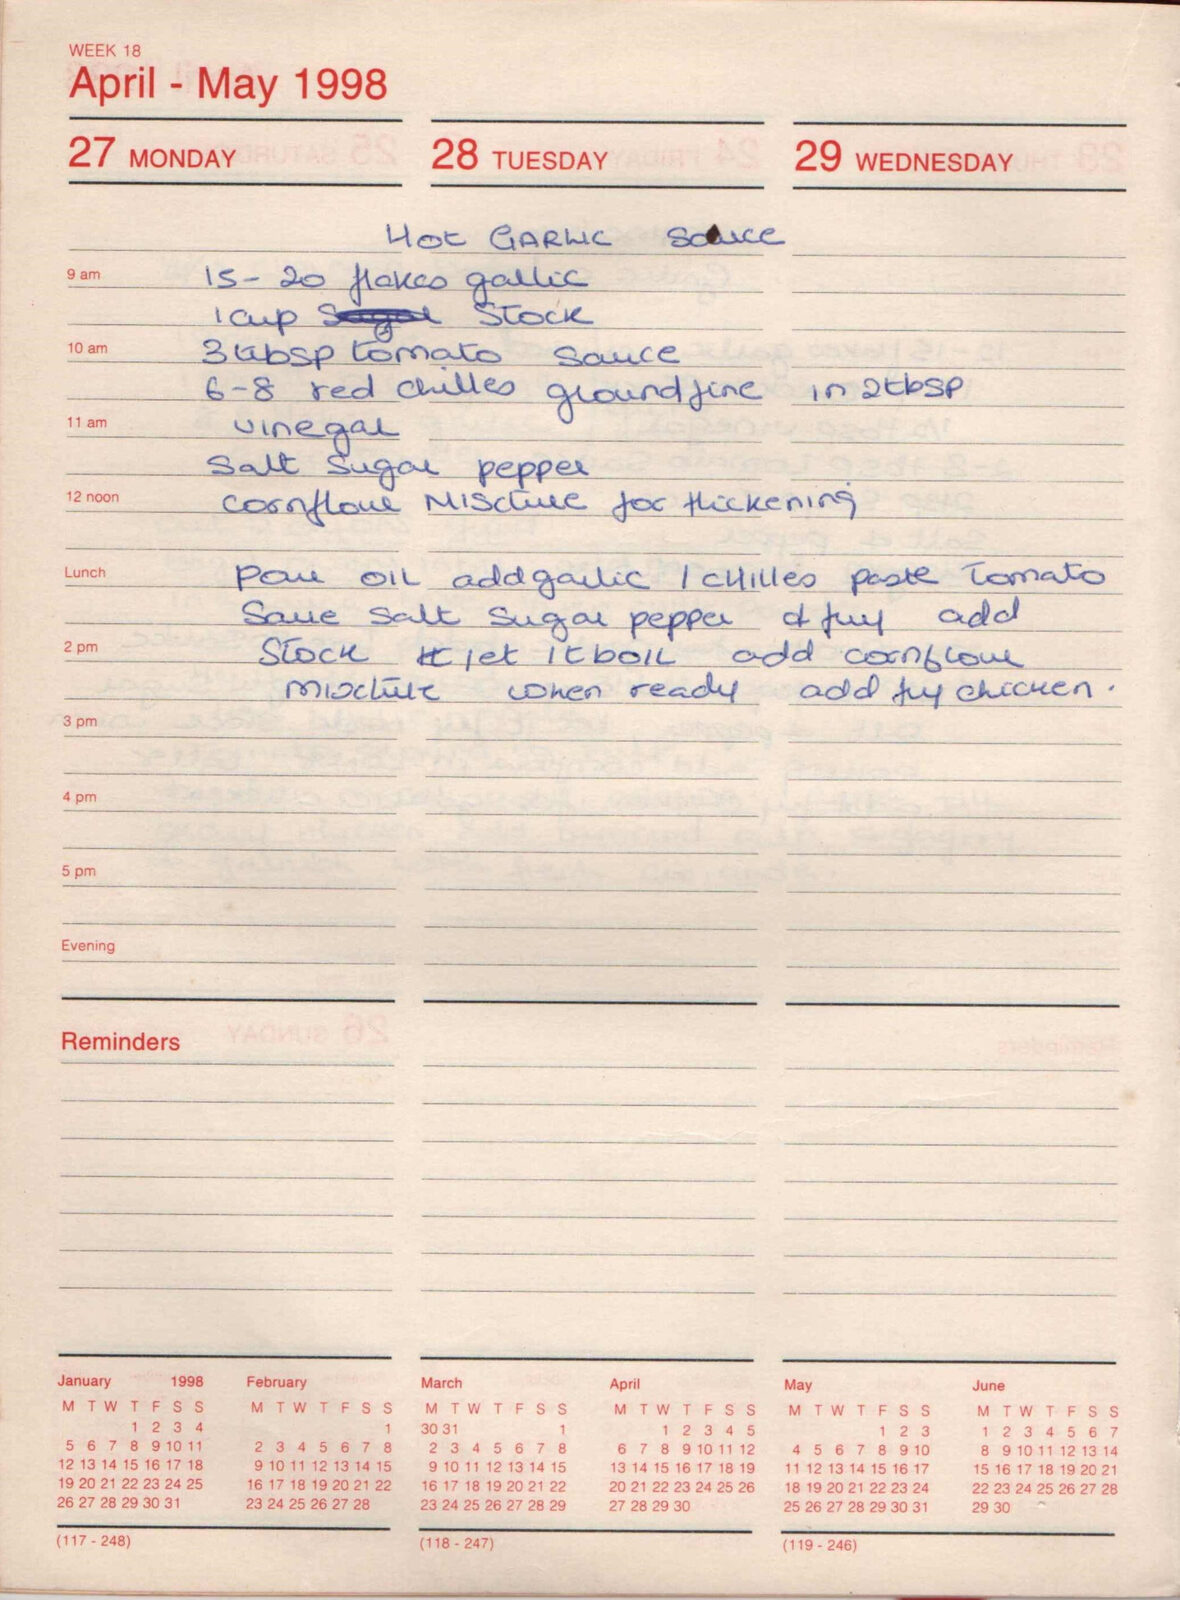 WEEK 18
April - May 1998
27 MONDAY
28 TUESDAY
29 WEDNESDAY
Hot GARLIC Sauce
9 am
15 - 20 flakes garlic
1 cup Stock
10 am
3 tabsp tomato sauce
6-8 red chilles ground fine in 2tbsp
11 am
vinegar
Salt Sugar pepper
12 noon
cornflour Mixture for thickening
Lunch
Pour OIL add garlic / CHILLES paste Tomato
Sauce Salt Sugar pepper & fry add
2 pm
Stock let it boil add cornflour
mixture when ready add fry chicken.
3 pm
4 pm
5 pm
Evening
Reminders
January 1998
M T W T F S S
1 2 3 4
5 6 7 8 9 10 11
12 13 14 15 16 17 18
19 20 21 22 23 24 25
26 27 28 29 30 31
February
M T W T F S S
1
2 3 4 5 6 7 8
9 10 11 12 13 14 15
16 17 18 19 20 21 22
23 24 25 26 27 28
March
M T W T F S S
30 31 1
2 3 4 5 6 7 8
9 10 11 12 13 14 15
16 17 18 19 20 21 22
23 24 25 26 27 28 29
April
M T W T F S S
1 2 3 4 5
6 7 8 9 10 11 12
13 14 15 16 17 18 19
20 21 22 23 24 25 26
27 28 29 30
May
M T W T F S S
1 2 3
4 5 6 7 8 9 10
11 12 13 14 15 16 17
18 19 20 21 22 23 24
25 26 27 28 29 30 31
June
M T W T F S S
1 2 3 4 5 6 7
8 9 10 11 12 13 14
15 16 17 18 19 20 21
22 23 24 25 26 27 28
29 30
(117 - 248)
(118 - 247)
(119 - 246)